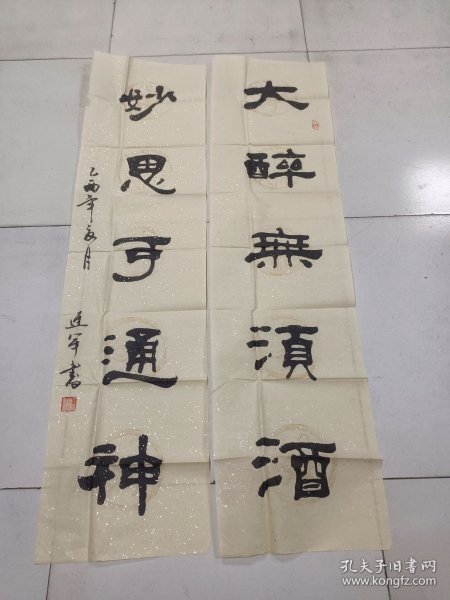 大醉無須酒
妙思可通神
乙酉年夏月
廷军書
孔夫子旧书网
www.kongfz.com